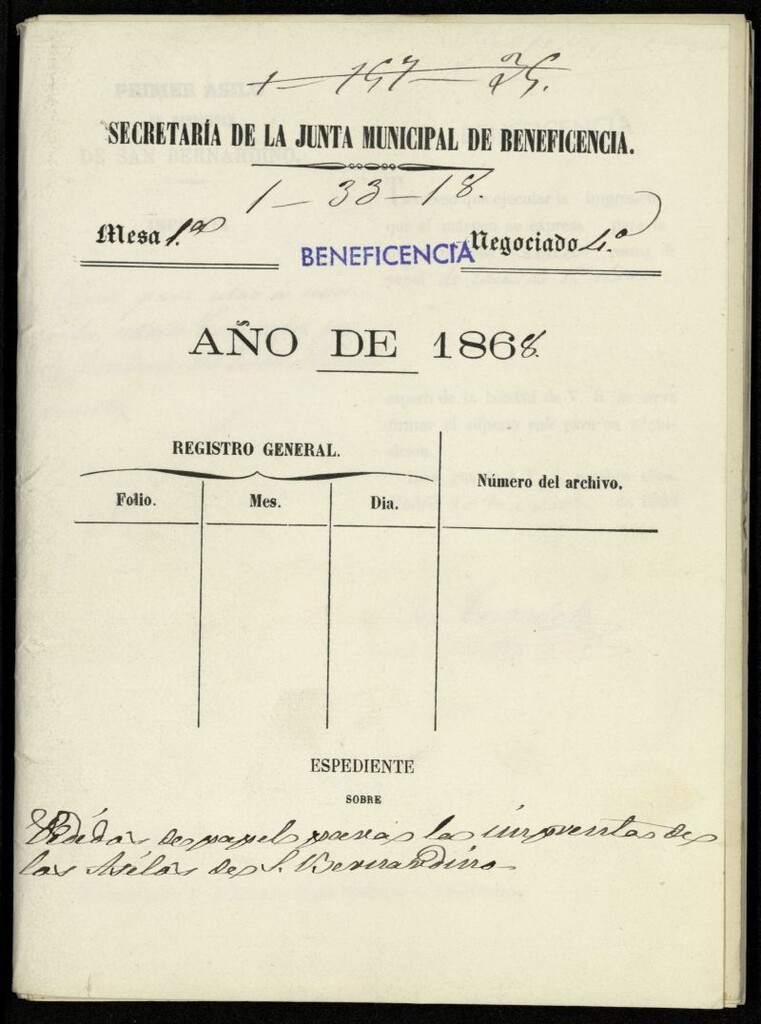 1 — 157 — 25.
SECRETARÍA DE LA JUNTA MUNICIPAL DE BENEFICENCIA.
1 — 33 — 18.
Mesa 1.ª BENEFICENCIA Negociado 4.º
AÑO DE 1868.
REGISTRO GENERAL.
Número del archivo.
Folio. Mes. Dia.
ESPEDIENTE
SOBRE
Pedidos de papel para la imprenta de
los Asilos de S. Bernardino